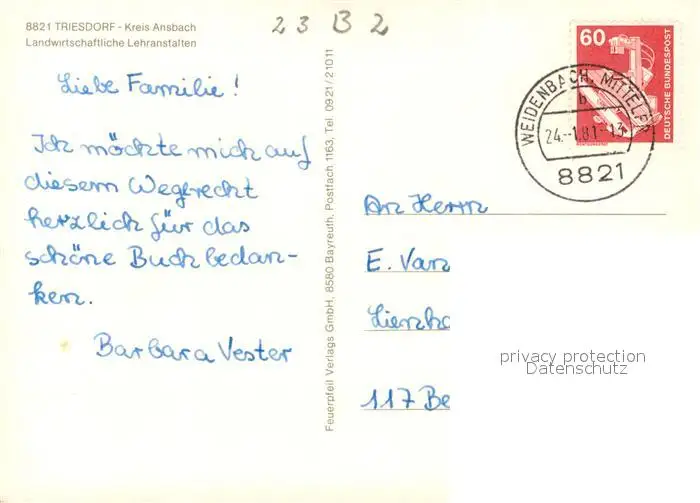 8821 TRIESDORF - Kreis Ansbach
Landwirtschaftliche Lehranstalten
23 B 2
60
DEUTSCHE BUNDESPOST
WEIDENBACH, MITTELFR
b
24.-1.81-13
8821
Liebe Familie!
Ich möchte mich auf
diesem Weg recht
herzlich für das
schöne Buch bedan-
ken.
Barbara Vester
Feuerpfeil Verlags GmbH, 8580 Bayreuth, Postfach 1163, Tel. 0921/21011
An Herrn
E. Van
117 Be
privacy protection
Datenschutz